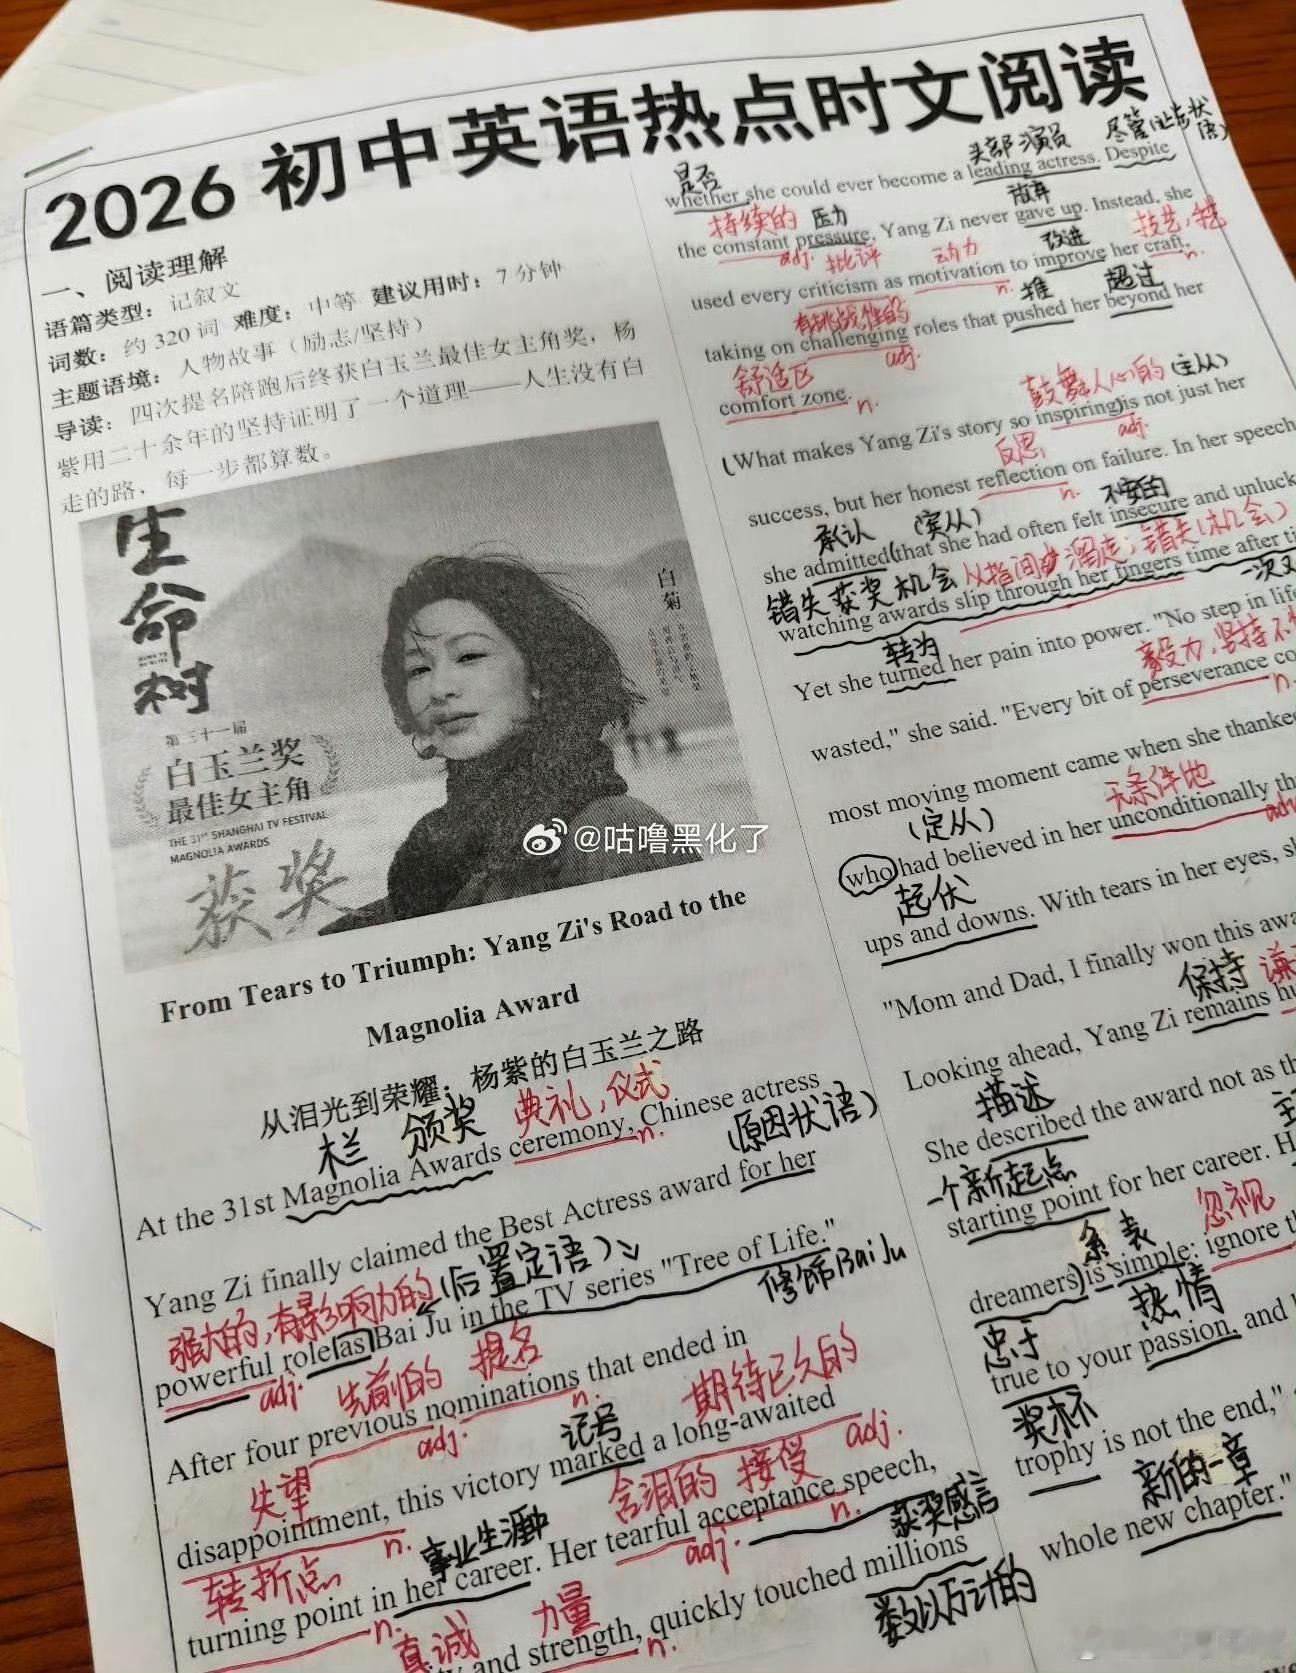 2026 初中英语热点时文阅读
一、阅读理解
语篇类型：记叙文
词数：约 320 词 难度：中等 建议用时：7 分钟
主题语境：人物故事（励志/坚持）
导读：四次提名陪跑后终获白玉兰最佳女主角奖，杨
紫用二十余年的坚持证明了一个道理——人生没有白
走的路，每一步都算数。
生命树
第三十一届
白玉兰奖
最佳女主角
THE 31ST SHANGHAI TV FESTIVAL
MAGNOLIA AWARDS
获奖
白菊
@咕噜黑化了
From Tears to Triumph: Yang Zi's Road to the
Magnolia Award
从泪光到荣耀：杨紫的白玉兰之路
木兰 颁奖 典礼，仪式
At the 31st Magnolia Awards ceremony, Chinese actress
n. (原因状语)
Yang Zi finally claimed the Best Actress award for her
强大的，有影响力的 (后置定语)
powerful role as Bai Ju in the TV series "Tree of Life."
adj. 先前的 提名 修饰Bai Ju
After four previous nominations that ended in
adj. n. 记号 期待已久的
disappointment, this victory marked a long-awaited
失望 n. 含泪的 接受 adj.
turning point in her career. Her tearful acceptance speech,
转折点 n. 事业生涯中 adj. n. 获奖感言
and strength, quickly touched millions
真诚 力量 n. 数以万计的
是否 头部演员 尽管(让步状语)
whether she could ever become a leading actress. Despite
持续的 压力 放弃
the constant pressure, Yang Zi never gave up. Instead, she
adj. 批评 动力 改进 技艺，
used every criticism as motivation to improve her craft,
有挑战性的 n. 推 超过 n.
taking on challenging roles that pushed her beyond her
舒适区 adj.
comfort zone. n.
鼓舞人心的 (主从)
(What makes Yang Zi's story so inspiring) is not just her
反思 adj.
success, but her honest reflection on failure. In her speech
承认 (宾从) n. 不安的
she admitted (that she had often felt insecure and unluck
错失获奖机会 从指间溜走；错失(机会)
watching awards slip through her fingers time after ti
转为 一次又
Yet she turned her pain into power. "No step in life
毅力，坚持不
wasted," she said. "Every bit of perseverance co
n.
most moving moment came when she thanke
(定从) 无条件地
who had believed in her unconditionally th
起伏 adv
ups and downs. With tears in her eyes, s
"Mom and Dad, I finally won this awa
保持 谦
Looking ahead, Yang Zi remains hu
描述
She described the award not as th
一个新起点
starting point for her career. H
系 表 忽视
dreamers) is simple: ignore t
忠于 热情
true to your passion, and
奖杯
trophy is not the end,"
新的一章
whole new chapter."